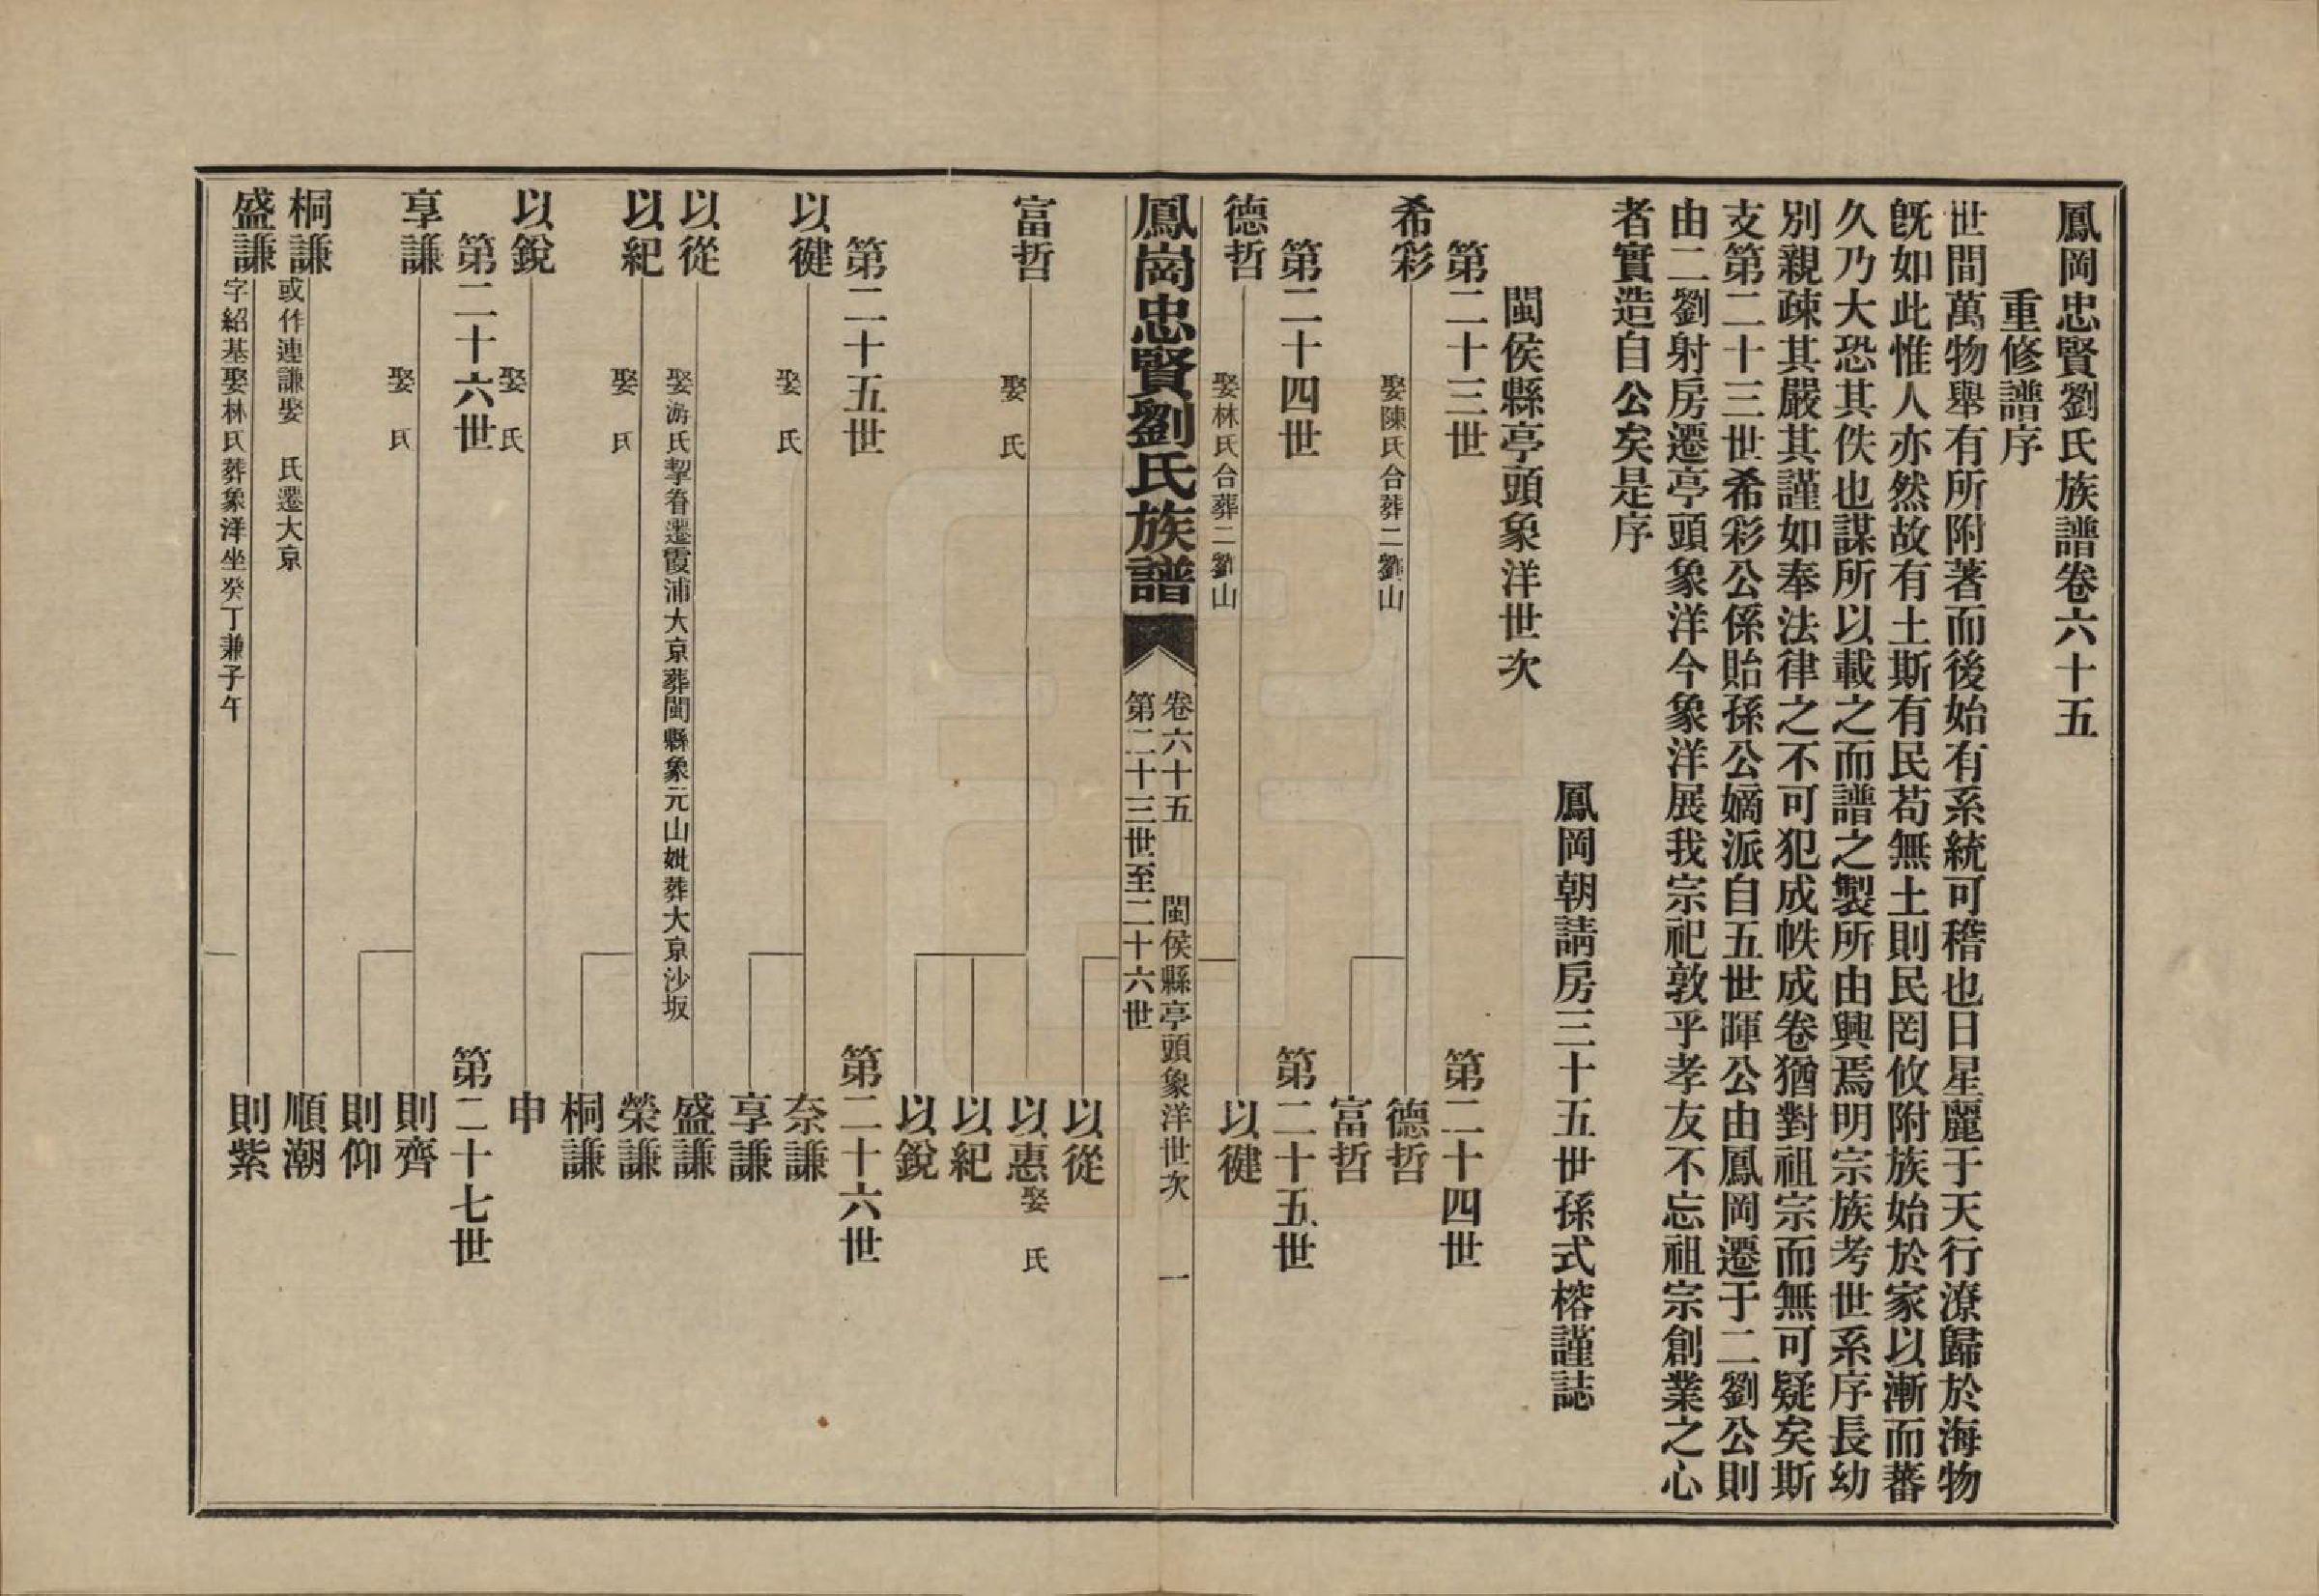 鳳岡忠賢劉氏族譜卷六十五
重修譜序
世間萬物舉有所附著而後始有系統可稽也日星麗于天行潦歸於海物
旣如此惟人亦然故有土斯有民苟無土則民罔攸附族始於家以漸而蕃
久乃大恐其佚也謀所以載之而譜之製所由興焉明宗族考世系序長幼
別親疎其嚴其謹如奉法律之不可犯成帙成卷猶對祖宗而無可疑矣斯
支第二十三世希彩公係貽孫公嫡派自五世暉公由鳳岡遷于二劉公則
由二劉射房遷亭頭象洋今象洋展我宗祀敦乎孝友不忘祖宗創業之心
者實造自公矣是序
鳳岡朝請房三十五世孫式榕謹誌
閩侯縣亭頭象洋世次
第二十三世
第二十四世
希彩
娶陳氏合葬二劉山
德哲
富哲
第二十四世
第二十五世
德哲
娶林氏合葬二劉山
以健
鳳崗忠賢劉氏族譜
卷六十五
閩侯縣亭頭象洋世次
一
第二十三世至二十六世
以從
富哲
娶 氏
以惠
娶 氏
以紀
以銳
第二十五世
第二十六世
以健
娶 氏
奈謙
享謙
以從
娶游氏挈眷遷霞浦大京葬閩縣象元山妣葬大京沙坂
盛謙
以紀
娶 氏
榮謙
桐謙
以銳
娶 氏
申
第二十六世
第二十七世
享謙
娶 氏
則齊
則仰
桐謙
或作連謙娶 氏遷大京
順潮
盛謙
字紹基娶林氏葬象洋坐癸丁兼子午
則紫